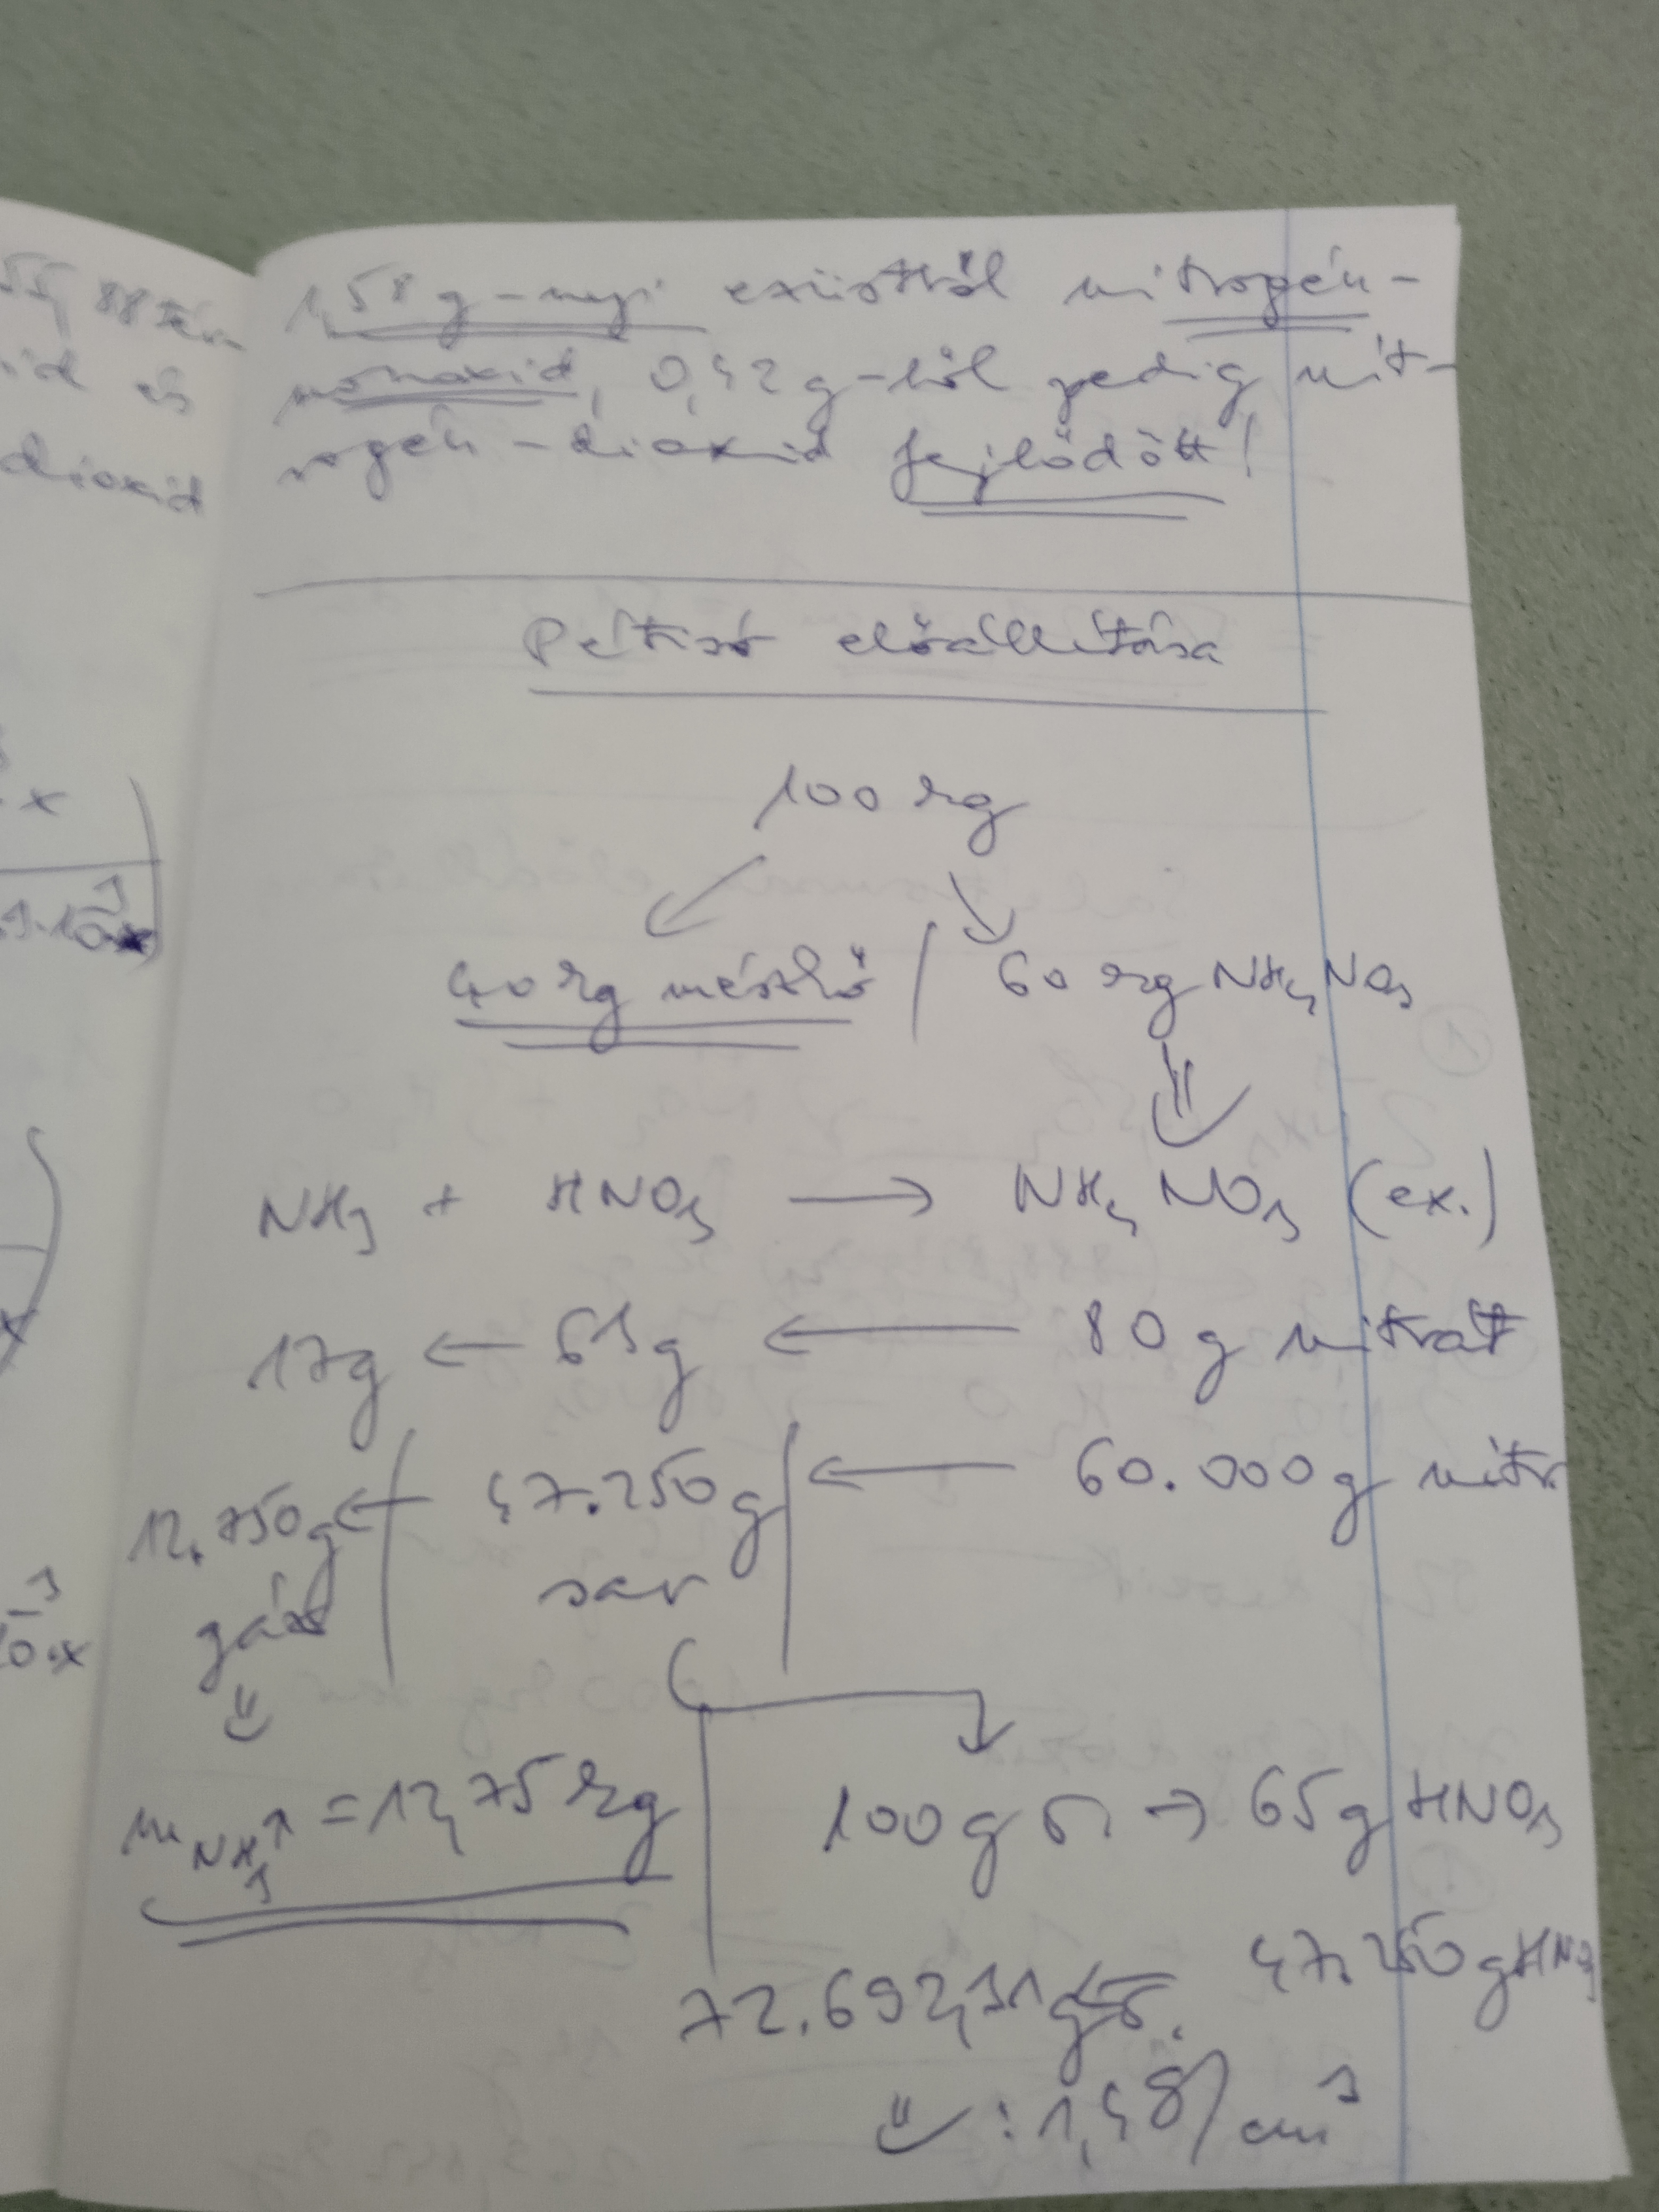 55,88 tér
id és
dioxid
1,58 g-nyi ezüstből nitrogén-
monoxid, 0,42 g-ból pedig nit-
rogén-dioxid fejlődött!
Pétisó előállítása
100 kg
40 kg mészkő / 60 kg NH4NO3
NH3 + HNO3 → NH4NO3 (ex.)
17g ← 63g ← 80 g nitrát
12.750g ← 47.250g ← 60.000g nitr.
gáz sav
mNH3↑ = 12,75 kg
100g o. → 65g HNO3
72.692,31 g o. ← 47.250g HNO3
: 1,4 g/cm³